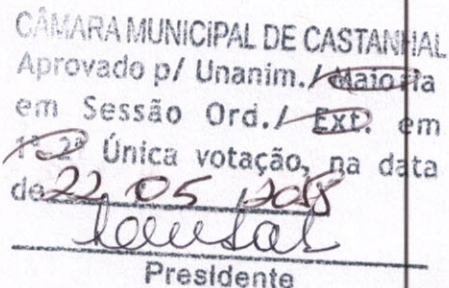 CÂMARA MUNICIPAL DE CASTANHAL
Aprovado p/ Unanim./ Maioria
em Sessão Ord./ Ext. em
1ª 2ª Única votação, na data
de 22, 05, 2018
Presidente